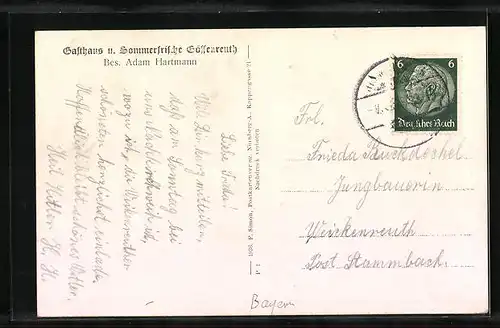 Gasthaus u. Sommerfrische Gössenreuth
Bes. Adam Hartmann
Liebe Frieda!
Will Dir kurz mitteilen,
daß am Sonntag bei
uns Nachkirchweih ist,
wozu ich, die Wirkenreuther
schönstens herzlichst einlade.
Hoffentlich ist schönes Wetter.
Heil Hitler H. H.
1936 F. Simon, Postkartenverlag, Nürnberg-A., Koppengasse 21
Nachdruck verboten
P 1
6 6
Deutsches Reich
Frl.
Frieda Ruckdeschel
Jungbäuerin
Wirkenreuth
Post Stammbach.
Bayer